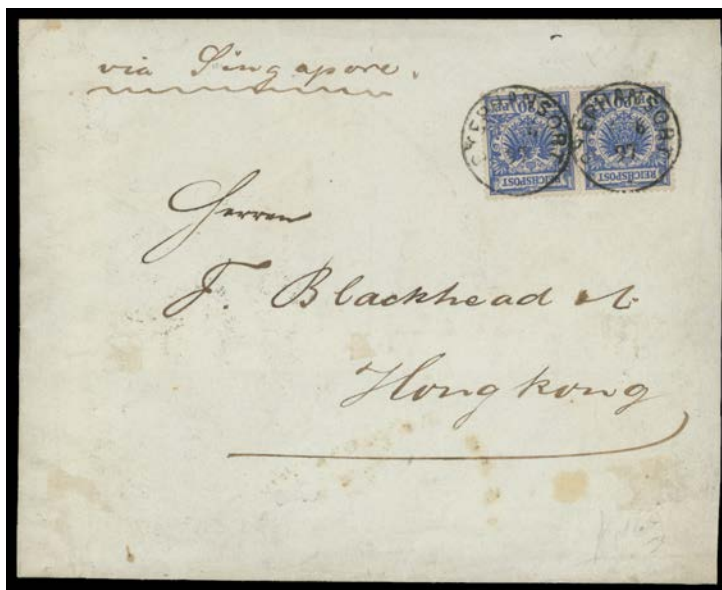 via Singapore.
STEPHANSORT
STEPHANSORT
97
REICHSPOST
REICHSPOST
Herren
F. Blackhead
Hongkong